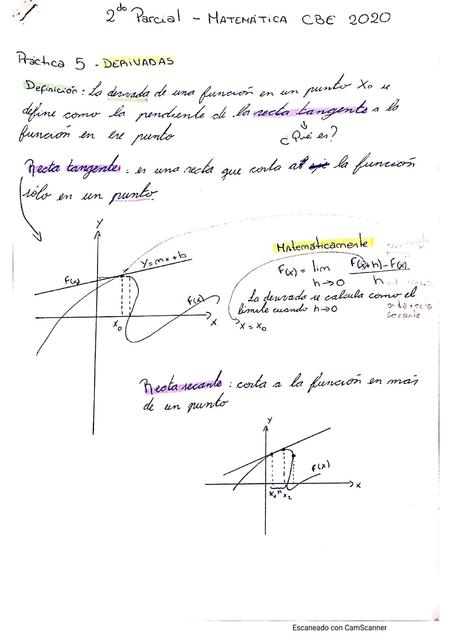 2do Parcial - MATEMÁTICA CBC 2020
Práctica 5 - DERIVADAS
Definición: La derivada de una función en un punto X0 se
define como la pendiente de la recta tangente a la
función en ese punto
¿Qué es?
Recta tangente: es una recta que corta a la función
sólo en un punto
Y
y=mx+b
F(x)
F(x)
x0
X
Matemáticamente
F(x) = lim F(x+h)-F(x)
h→0 h
La derivada se calcula como el
límite cuando h→0
x = x0
secante
Recta secante: corta a la función en más
de un punto
Y
F(x)
x1 h x2
X
Escaneado con CamScanner